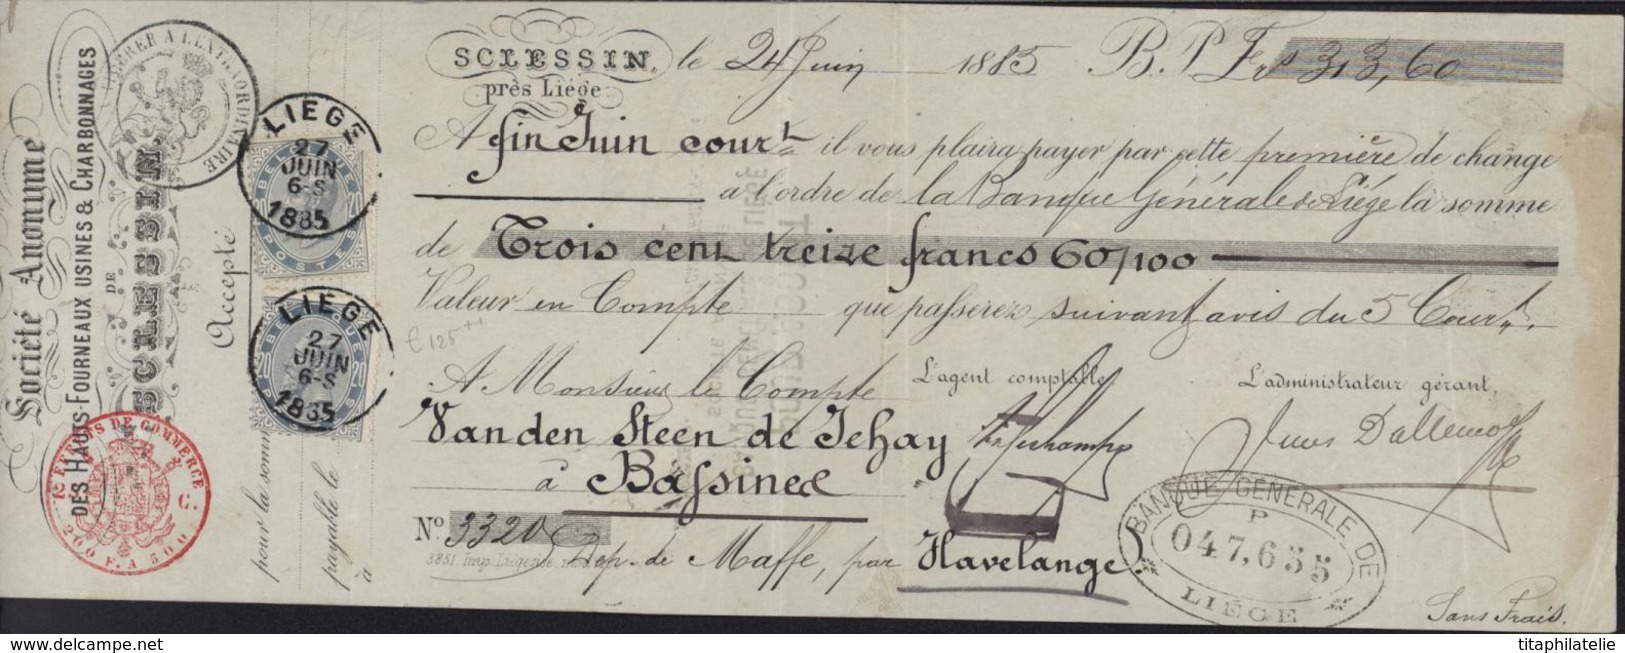 Société Anonyme
DES HAUTS-FOURNEAUX USINES & CHARBONNAGES
DE
SCLESSIN.
A L'EXTRAORDINAIRE
EFFETS DE COMMERCE
G.
200 F. A 500
Accepté
pour la somme
payable le
à
LIEGE
27
JUIN
6-S
1885
BELGIQUE
20
POSTES
LIEGE
27
JUIN
6-S
1885
SCLESSIN, le 24 Juin 1885 B.P.Frs 313,60
près Liége
A fin Juin court il vous plaira payer par cette première de change
à l'ordre de la Banque Générale de Liége la somme
de Trois cent treize francs 60/100
Valeur en Compte que passerez suivant avis du 5 Court.
€ 125
A Monsieur le Compte L'agent comptable, L'administrateur gérant,
Van den Steen de Jehay
à Bassines
No. 3320
3851. Imp. Liégeoise
Dep. de Maffe, par Havelange
BANQUE GENERALE DE
P
047,655
LIEGE
Sans Frais.
www.delcampe.net
titaphilatelie